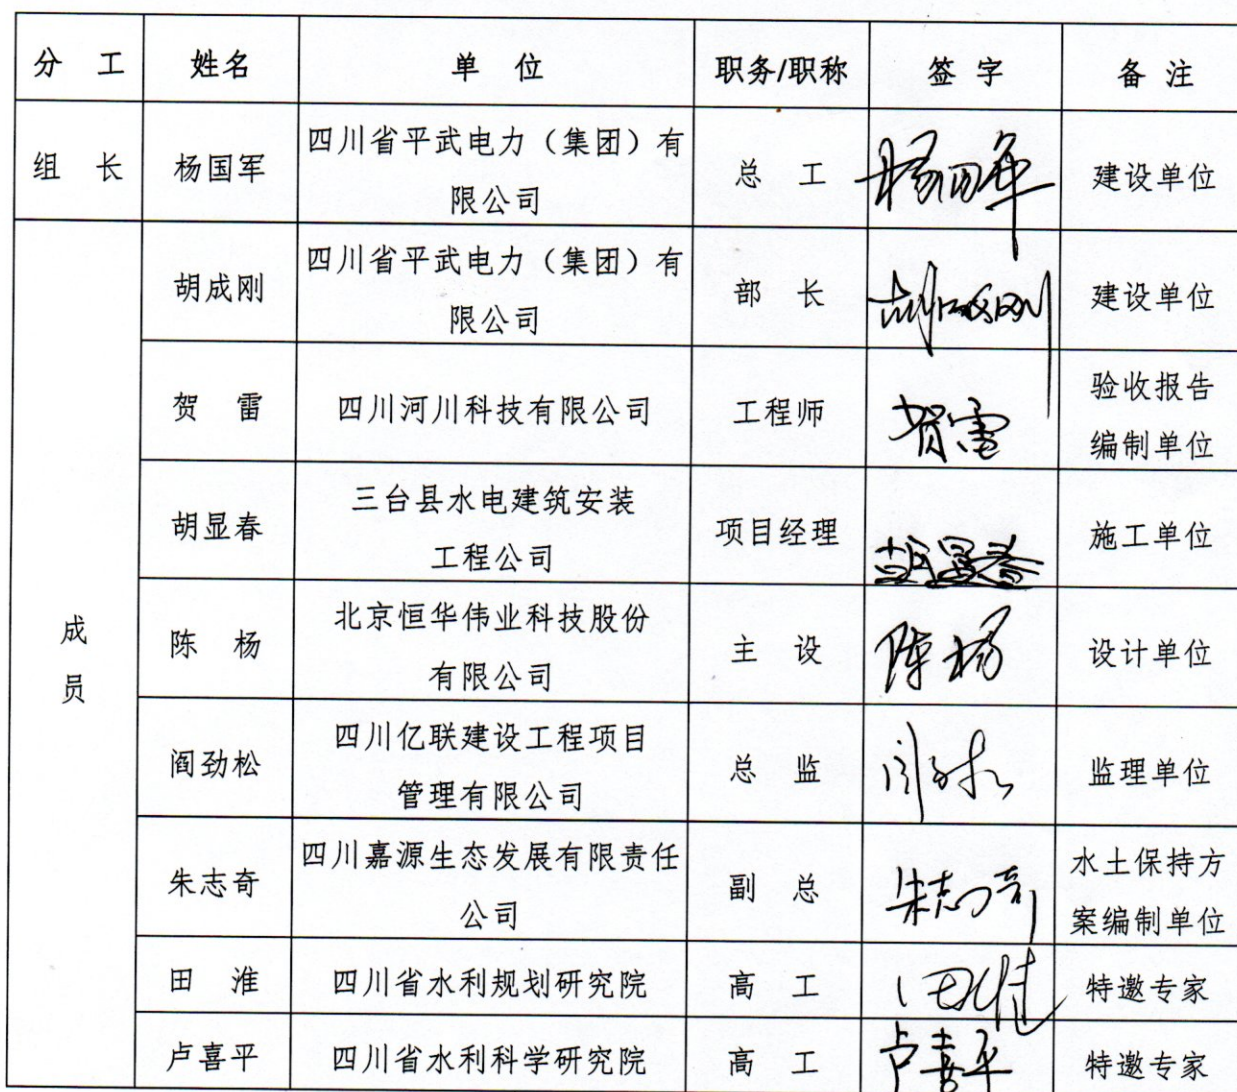 分 工 姓名 单 位 职务/职称 签 字 备 注
组 长 杨国军 四川省平武电力（集团）有
限公司 总 工 杨国军 建设单位
成
员
胡成刚 四川省平武电力（集团）有
限公司 部 长 胡成刚 建设单位
贺 雷 四川河川科技有限公司 工程师 贺雷 验收报告
编制单位
胡显春 三台县水电建筑安装
工程公司 项目经理 胡显春 施工单位
陈 杨 北京恒华伟业科技股份
有限公司 主 设 陈杨 设计单位
阎劲松 四川亿联建设工程项目
管理有限公司 总 监 监理单位
朱志奇 四川嘉源生态发展有限责任
公司 副 总 朱志奇 水土保持方
案编制单位
田 淮 四川省水利规划研究院 高 工 田淮 特邀专家
卢喜平 四川省水利科学研究院 高 工 卢喜平 特邀专家